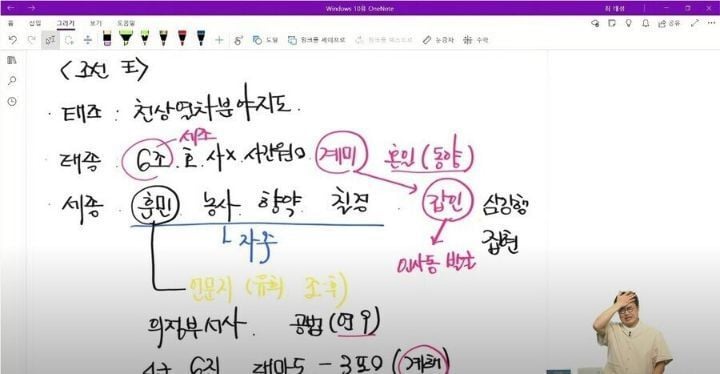 Windows 10용 OneNote
최 태성
파일 홈 삽입 그리기 보기 도움말
공유
도형 잉크를 셰이프로 잉크를 텍스트로 눈금자 수학
<조선 王>
· 태조 : 천상열차분야지도
세조
· 태종 6조 호 사x 사간원O 계미 혼일 (동양)
· 세종 훈민 농사 향약 칠정 갑인 삼강행
자주 집현
인사동 발견
언문지 (유희 조후)
의정부서사 공법 (연9)
4군 6진 대마도 - 3포O (계해)